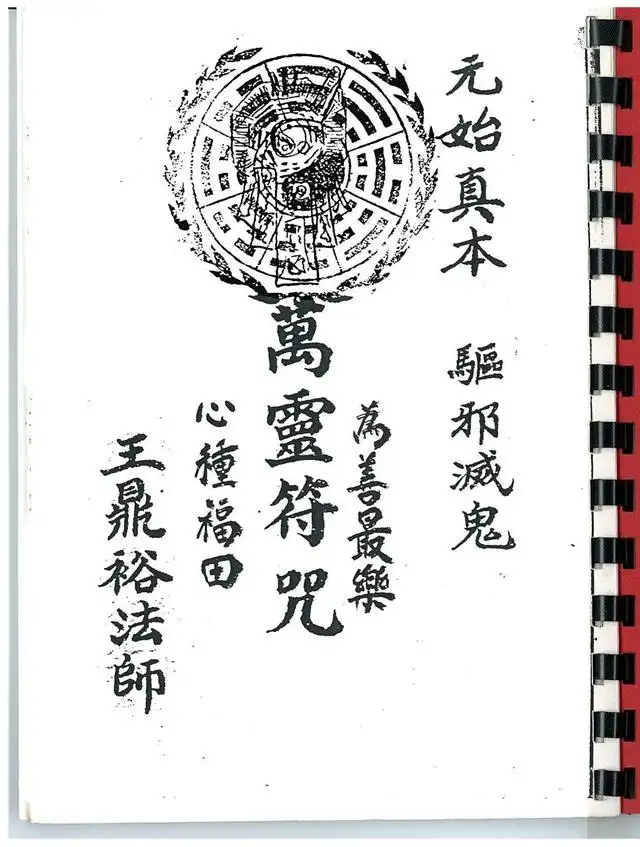 元始真本 驅邪滅鬼
為善最樂
萬靈符咒
心種福田
王鼎裕法師